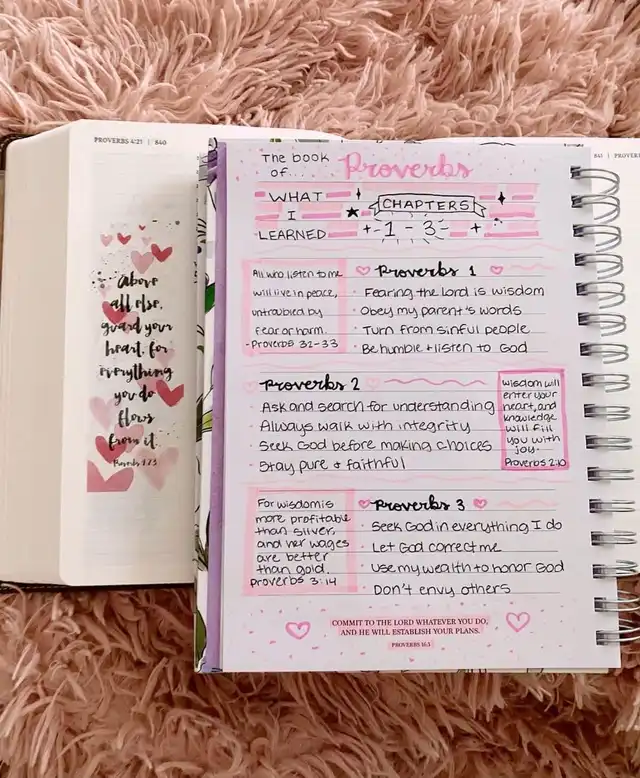 PROVERBS 4:21 | 840
Above
all else,
guard your
heart, for
everything
you do
flows
from it.
Proverbs 4:23
The book
of.... Proverbs
WHAT
I
LEARNED
CHAPTERS
1 - 3
All who listen to me
will live in peace,
untroubled by
fear or harm.
-Proverbs 32-33
Proverbs 1
· Fearing the Lord is wisdom
· Obey my parent's words
· Turn from sinful people
· Be humble + listen to God
Proverbs 2
· Ask and search for understanding
· Always walk with integrity
· Seek God before making choices
· Stay pure & faithful
Wisdom will
enter your
heart, and
knowledge
will fill
you with
joy.
Proverbs 2:10
For wisdom is
more profitable
than silver,
and her wages
are better
than gold.
Proverbs 3:14
Proverbs 3
· Seek God in everything I do
· Let God correct me
· Use my wealth to honor God
· Don't envy others
COMMIT TO THE LORD WHATEVER YOU DO,
AND HE WILL ESTABLISH YOUR PLANS.
PROVERBS 16:3